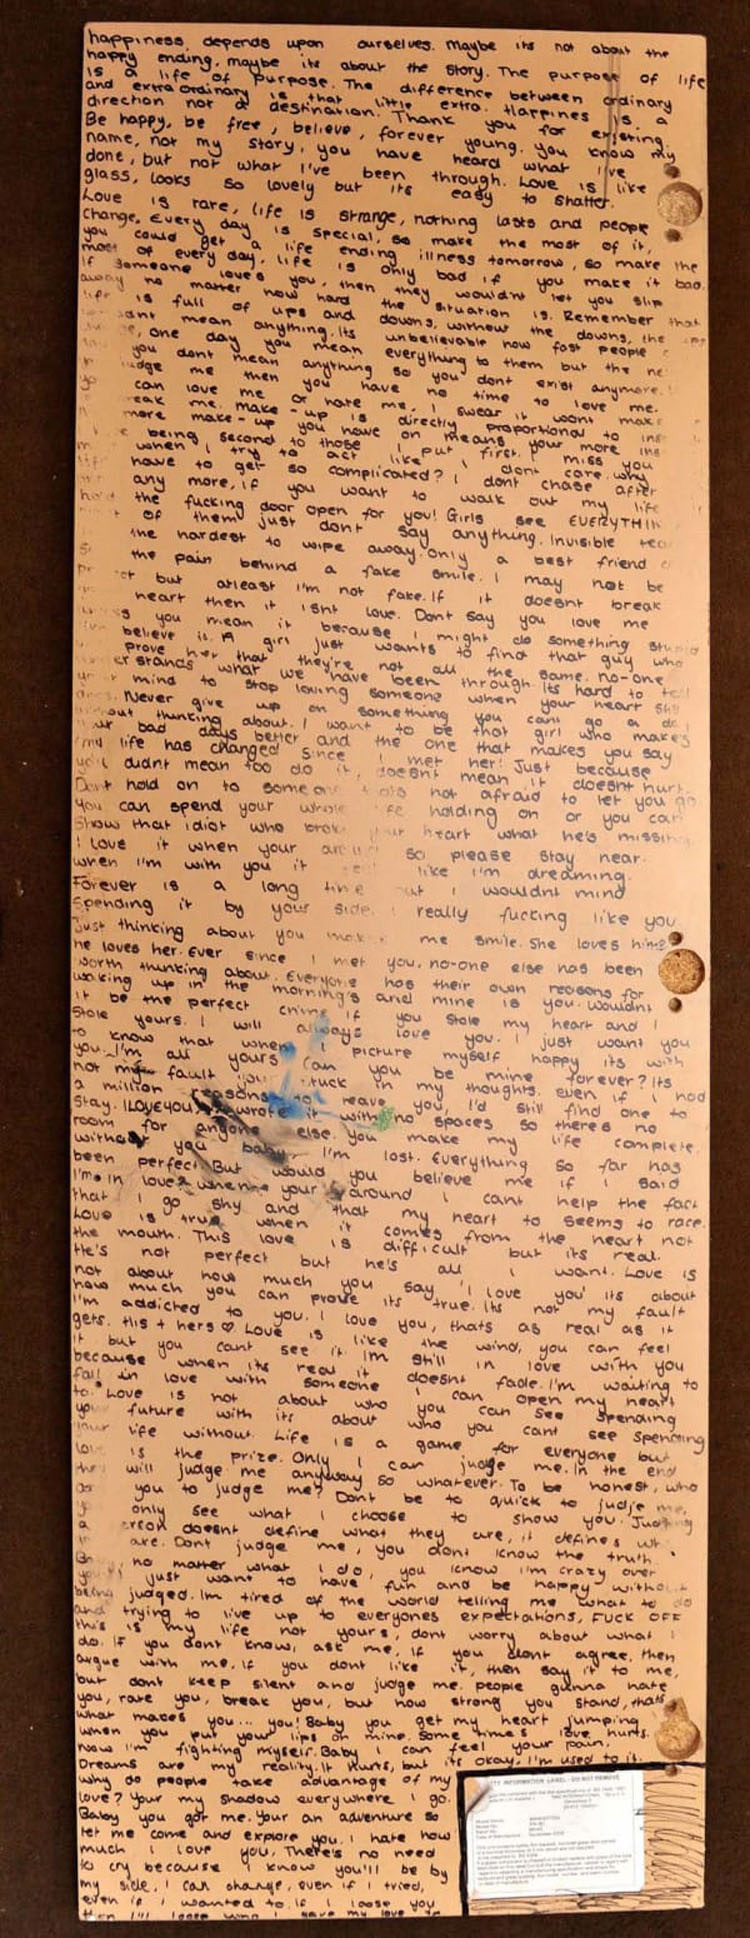 happiness depends upon ourselves. Maybe its not about the
happy ending, maybe its about the story. The purpose of life
is a life of purpose. The difference between ordinary
and extraordinary is that little extra. Happines is a
direction not a destination. Thank you for existing.
Be happy, be free, believe, forever young. you know my
name, not my story, you have heard what I've
done, but not what I've been through. Love is like
glass, looks so lovely but its easy to shatter.
Love is rare, life is strange, nothing lasts and people
change. Every day is special, so make the most of it,
you could get a life ending illness tomorrow, so make the
most of every day. life is only bad if you make it bad.
If someone loves you, then they wouldnt let you slip
away no matter how hard the situation is. Remember that
life is full of ups and downs, without the downs, the ups
mean anything. Its unbelievable how fast people
one day you mean everything to them but the
you dont mean anything so you dont exist anymore.
judge me then you have no time to love me.
can love me or hate me, I swear it wont
me. make-up is directly proportional to
more make-up you have on means your more
being second to those I put first. I miss you
when I try to act like I dont care. why
have to get so complicated? I dont chase after
any more, if you want to walk out my life
the fucking door open for you! Girls see
of them just dont say anything. Invisible
the hardest to wipe away. only a best friend
the pain behind a fake smile. I may not be
but atleast I'm not fake. If it doesnt break
heart then it isnt love. Dont say you love me
you mean it because I might do something stupid
believe it. A girl just wants to find that guy who
prove her that they're not all the same. no-one
what we have been through. Its hard to tell
your mind to stop loving someone when your heart
Never give up on something you cant go a day
thinking about. I want to be that girl who makes
bad days better and the one that makes you say
my life has changed since I met her! Just because
you didnt mean too do it, doesnt mean it doesnt hurt.
Dont hold on to someone not afraid to let you go
You can spend your whole life holding on or you can
show that idiot who broke your heart what he's missing
I love it when your so please stay near.
when I'm with you it like I'm dreaming.
Forever is a long time but I wouldnt mind
spending it by your side. I really fucking like you
Just thinking about you makes me smile. She loves him
he loves her. Ever since I met you, no-one else has been
worth thinking about. Everyone has their own reasons for
waking up in the morning's and mine is you. Wouldnt
it be the perfect crime if you stole my heart and I
stole yours. I will always love you. I just want you
to know that when I picture myself happy its with
you. I'm all yours. Can you be mine forever? Its
not my fault your stuck in my thoughts. even if I had
a million reasons to leave you, I'd still find one to
stay. ILOVEYOU, I wrote it with no spaces so theres no
room for anyone else. You make my life complete.
without you baby, I'm lost. Everything so far has
been perfect. But would you believe me if I said
I'm in love? when your around I cant help the fact
that I go shy and that my heart to seems to race.
Love is true when it comes from the heart not
the mouth. This love is difficult but its real.
He's not perfect but he's all I want. Love is
not about how much you say 'I love you' its about
how much you can prove its true. Its not my fault
I'm addicted to you. I love you, thats as real as it
gets. His + hers ♡ Love is like the wind, you can feel
it but you cant see it. Im still in love with you
because when its real it doesnt fade. I'm waiting to
fall in love with someone I can open my heart
to. Love is not about who you can see spending
your future with its about who you cant see spending
your life without. Life is a game for everyone but
love is the prize. Only I can judge me. In the end
they will judge me anyway so whatever. To be honest, who
are you to judge me? Dont be to quick to judje me,
you only see what I choose to show you. Judging
a person doesnt define what they are, it defines
are. Dont judge me, you dont know the truth.
no matter what I do, you know I'm crazy over
you. I just want to have fun and be happy without
being judged. Im tired of the world telling me what to do
and trying to live up to everyones expectations, FUCK OFF
this is my life not yours, dont worry about what I
do. If you dont know, ask me. If you dont agree, then
argue with me. If you dont like it, then say it to me,
but dont keep silent and judge me. people gunna hate
you, rate you, break you, but how strong you stand, thats
what makes you... you! Baby you get my heart jumping
when you put your lips on mine. Some times love hurts.
now I'm fighting myself. Baby I can feel your pain.
Dreams are my reality. It hurts, but its okay, I'm used to it.
why do people take advantage of my
love? Your my shadow everywhere I go.
Baby you got me. Your an adventure so
let me come and explore you. I hate how
much I love you. There's no need
to cry because I know you'll be by
my side. I can change, even if I tried,
even if I wanted to. If I loose you
then I'll loose who I gave my love to
INFORMATION LABEL - DO NOT REMOVE